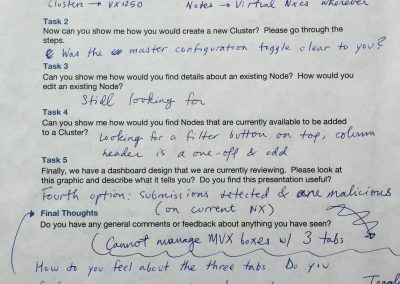 Clusters → VX1250 Notes → Virtual Nxes wherever
Task 2
Now can you show me how you would create a new Cluster? Please go through the
steps.
Was the master configuration toggle clear to you?
Task 3
Can you show me how would you find details about an existing Node? How would you
edit an existing Node?
Still looking for
Task 4
Can you show me how would you find Nodes that are currently available to be added
to a Cluster? Looking for a filter button on top, column
header is a one-off & odd
Task 5
Finally, we have a dashboard design that we are currently reviewing. Please look at
this graphic and describe what it tells you? Do you find this presentation useful?
Fourth option: submissions detected & are malicious
(on current NX)
Final Thoughts
Do you have any general comments or feedback about anything you have seen?
(Cannot manage MVX boxes w/ 3 tabs
How do you feel about the three tabs Do you